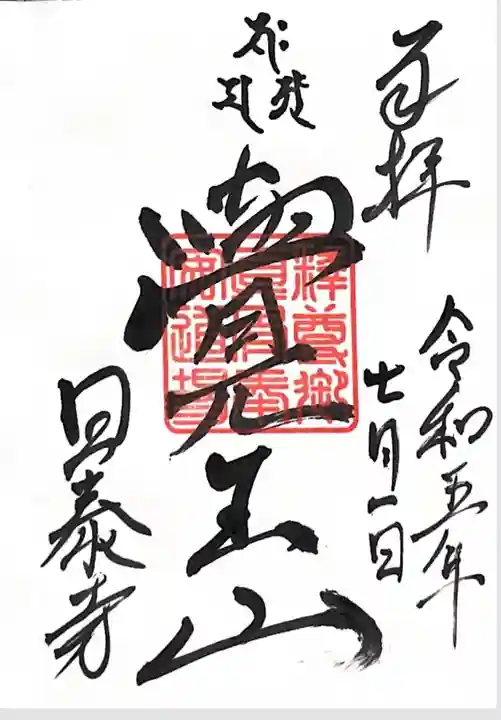 奉拝
令和五年
七月一日
覺王山
釋尊御
眞骨奉
安道場
日泰寺